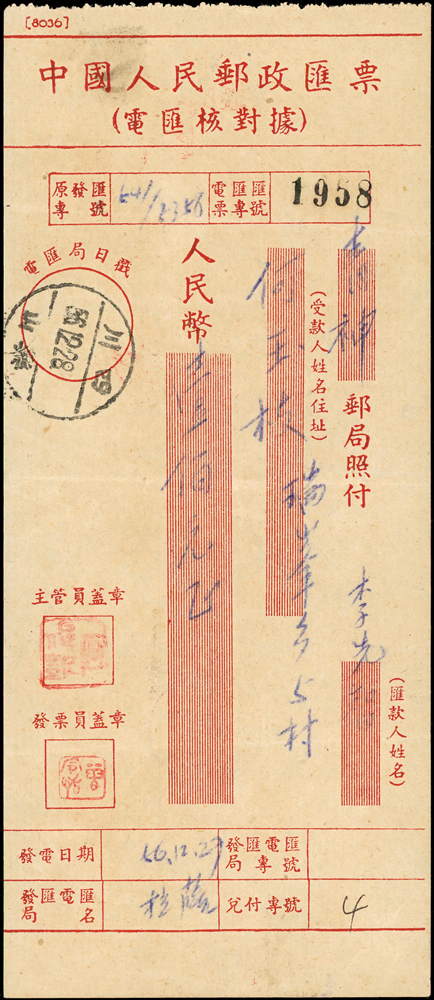 [8036]
中國人民郵政匯票
(電匯核對據)
原發匯
專號
電匯匯
票專號
1958
電匯局日戳
56.12.28
四川
人民幣
佰元正
(受款人姓名住址)
何玉枝
郵局照付
李先
(匯款人姓名)
主管員蓋章
發票員蓋章
發電日期
56.12.27
發匯電匯
局專號
發匯電匯
局名
兌付專號
4